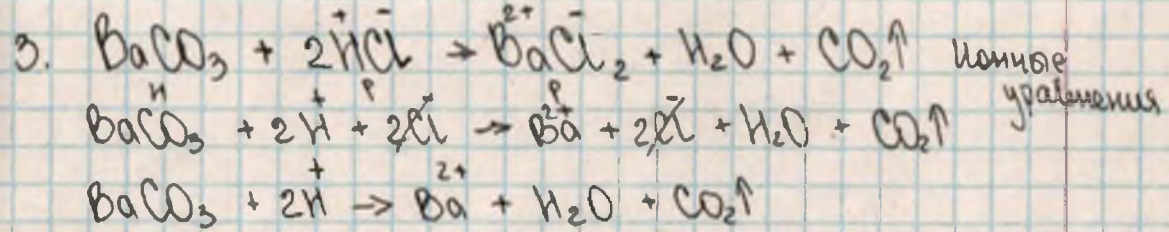 3. BaCO₃ + 2H⁺Cl⁻ → Ba²⁺Cl⁻₂ + H₂O + CO₂↑ Ионные
н р р уравнения
BaCO₃ + 2H⁺ + 2Cl⁻ → Ba²⁺ + 2Cl⁻ + H₂O + CO₂↑
BaCO₃ + 2H⁺ → Ba²⁺ + H₂O + CO₂↑